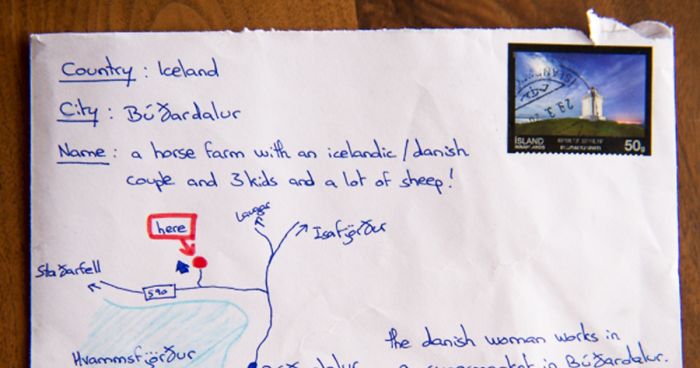 Country : Iceland
City : Búðardalur
Name : a horse farm with an icelandic / danish
couple and 3 kids and a lot of sheep!
ÍSLAND
50g
29.3.
here
Laugar
Isafjörður
Staðarfell
590
Hvammsfjörður
the danish woman works in
a supermarket in Búðardalur.